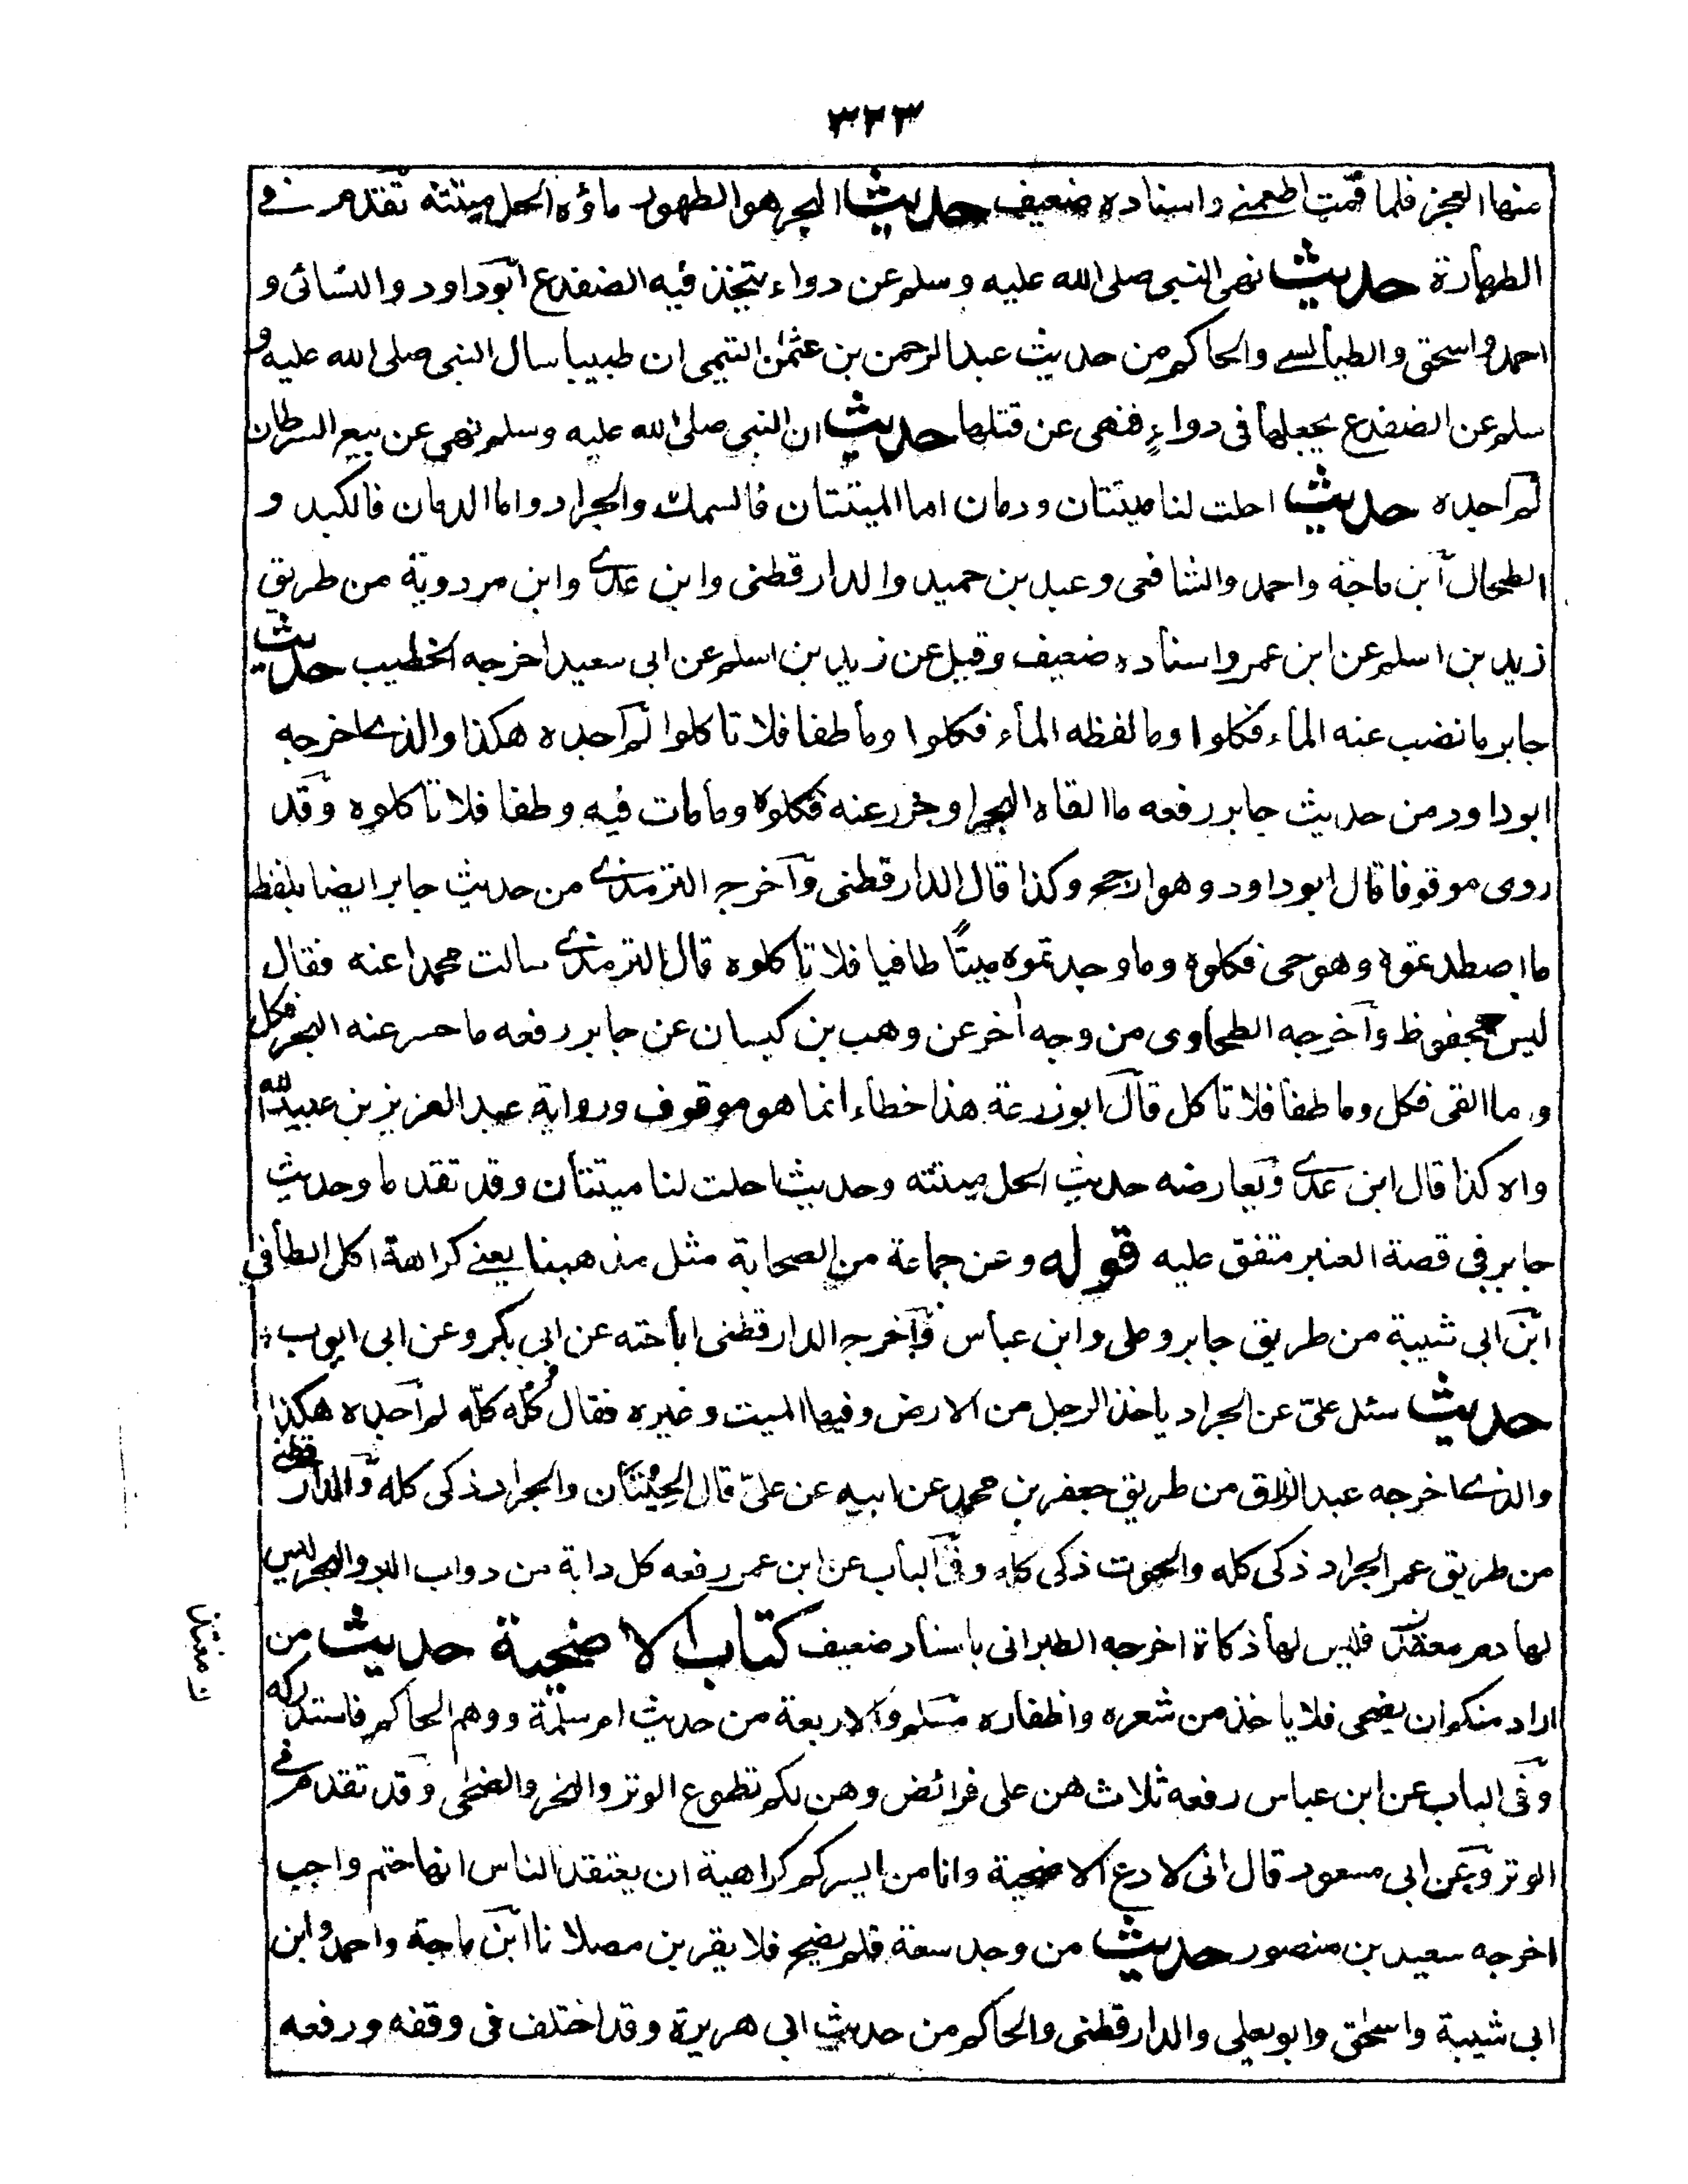 ٣٢٣
منها العجز فلما قمت اطعمنے واسناده ضعيف حديث البحر هوالطهور ماؤه الحل ميتته تقدم فے
الطهارة حديث نهى النبى صلى الله عليه وسلم عن دواء يتخذ فيه الضفدع ابوداود والنسائى و
احمد واسحق والطيالسے والحاكم من حديث عبدالرحمن بن عثمن التيمى ان طبيبا سال النبى صلى الله عليه و
سلم عن الضفدع يجعلها فى دواء فنهى عن قتلها حديث ان النبى صلى الله عليه وسلم نهى عن بيع السرطان
لم اجده حديث احلت لنا ميتتان ودمان اما الميتتان فالسمك والجراد واما الدمان فالكبد و
الطحال ابن ماجة واحمد والشافعى وعبد بن حميد والدارقطنى وابن عدے وابن مردوية من طريق
زيد بن اسلم عن ابن عمر واسناده ضعيف وقيل عن زيد بن اسلم عن ابى سعيد اخرجه الخطيب حديث
جابر ما نضب عنه الماء فكلوا وما لفظه الماء فكلوا وما طفا فلا تاكلوا لم اجده هكذا والذے اخرجه
ابوداود من حديث جابر رفعه ما القاه البحر او جزر عنه فكلوه وما مات فيه وطفا فلا تاكلوه وقد
روى موقوفا قال ابوداود وهو ارجح وكذا قال الدارقطنى وآخرجه الترمذے من حديث جابر ايضا بلفظ
ما اصطدتموه وهو حى فكلوه وما وجدتموه ميتًا طافيا فلا تاكلوه قال الترمذے سالت محمدا عنه فقال
ليس بمحفوظ وآخرجه الطحاوى من وجه اخر عن وهب بن كيسان عن جابر رفعه ما حسر عنه البحر فكل
وما القى فكل وما طفا فلا تاكل قال ابوزرعة هذا خطاء انما هو موقوف ورواية عبدالعزيز بن عبيدالله
واه كذا قال ابن عدے ويعارضه حديث الحل ميتته وحديث احلت لنا ميتتان وقد تقدما وحديث
جابر فى قصة العنبر متفق عليه قوله وعن جماعة من الصحابة مثل مذهبنا يعنے كراهة اكل الطافى
ابن ابى شيبة من طريق جابر وعلى وابن عباس وآخرجه الدارقطنى اباحته عن ابى بكر وعن ابى ايوب
حديث سئل علىّ عن الجراد ياخذ الرجل من الارض وفيها الميت وغيره فقال كُلْه كلّه لم اجده هكذا
والذے اخرجه عبدالرزاق من طريق جعفر بن محمد عن ابيه عن علىّ قال الحيتان والجراد ذكى كله والدارقطنے
من طريق عمر الجراد ذكى كله والحوت ذكى كله وفى الباب عن ابن عمر رفعه كل دابة من دواب البر والبحر ليس
لها دم فليس لها ذكاة اخرجه الطبرانى باسناد ضعيف كتاب الاضحية حديث من
اراد منكم ان يضحى فلا ياخذ من شعره واظفاره مسلم والاربعة من حديث ام سلمة ووهم الحاكم فاستدركه
وفى الباب عن ابن عباس رفعه ثلاث هن على فرائض وهن لكم تطوع الوتر والنحر والضحى وقد تقدم فے
الوتر وعن ابى مسعود قال انى لادع الاضحية وانا من ايسركم كراهية ان يعتقد الناس انها حتم واجب
اخرجه سعيد بن منصور حديث من وجد سعة فلم يضح فلا يقربن مصلانا ابن ماجة واحمد وابن
ابى شيبة واسحق وابويعلى والدارقطنى والحاكم من حديث ابى هريرة وقد اختلف فى وقفه ورفعه